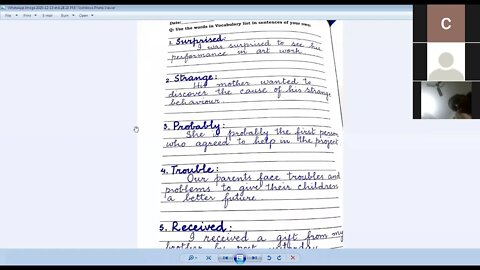 Date:
Q: Use the words in Vocabulary list in sentences of your own:
1. Surprised:
I was surprised to see his
performance in art work.
2. Strange:
His mother wanted to
discover the cause of his strange
behaviour.
3. Probably:
She is probably the first person
who agreed to help in the project
4. Trouble:
Our parents face troubles and
problems to give their children
a better future
5. Received:
I received a gift from my
brother by post
C